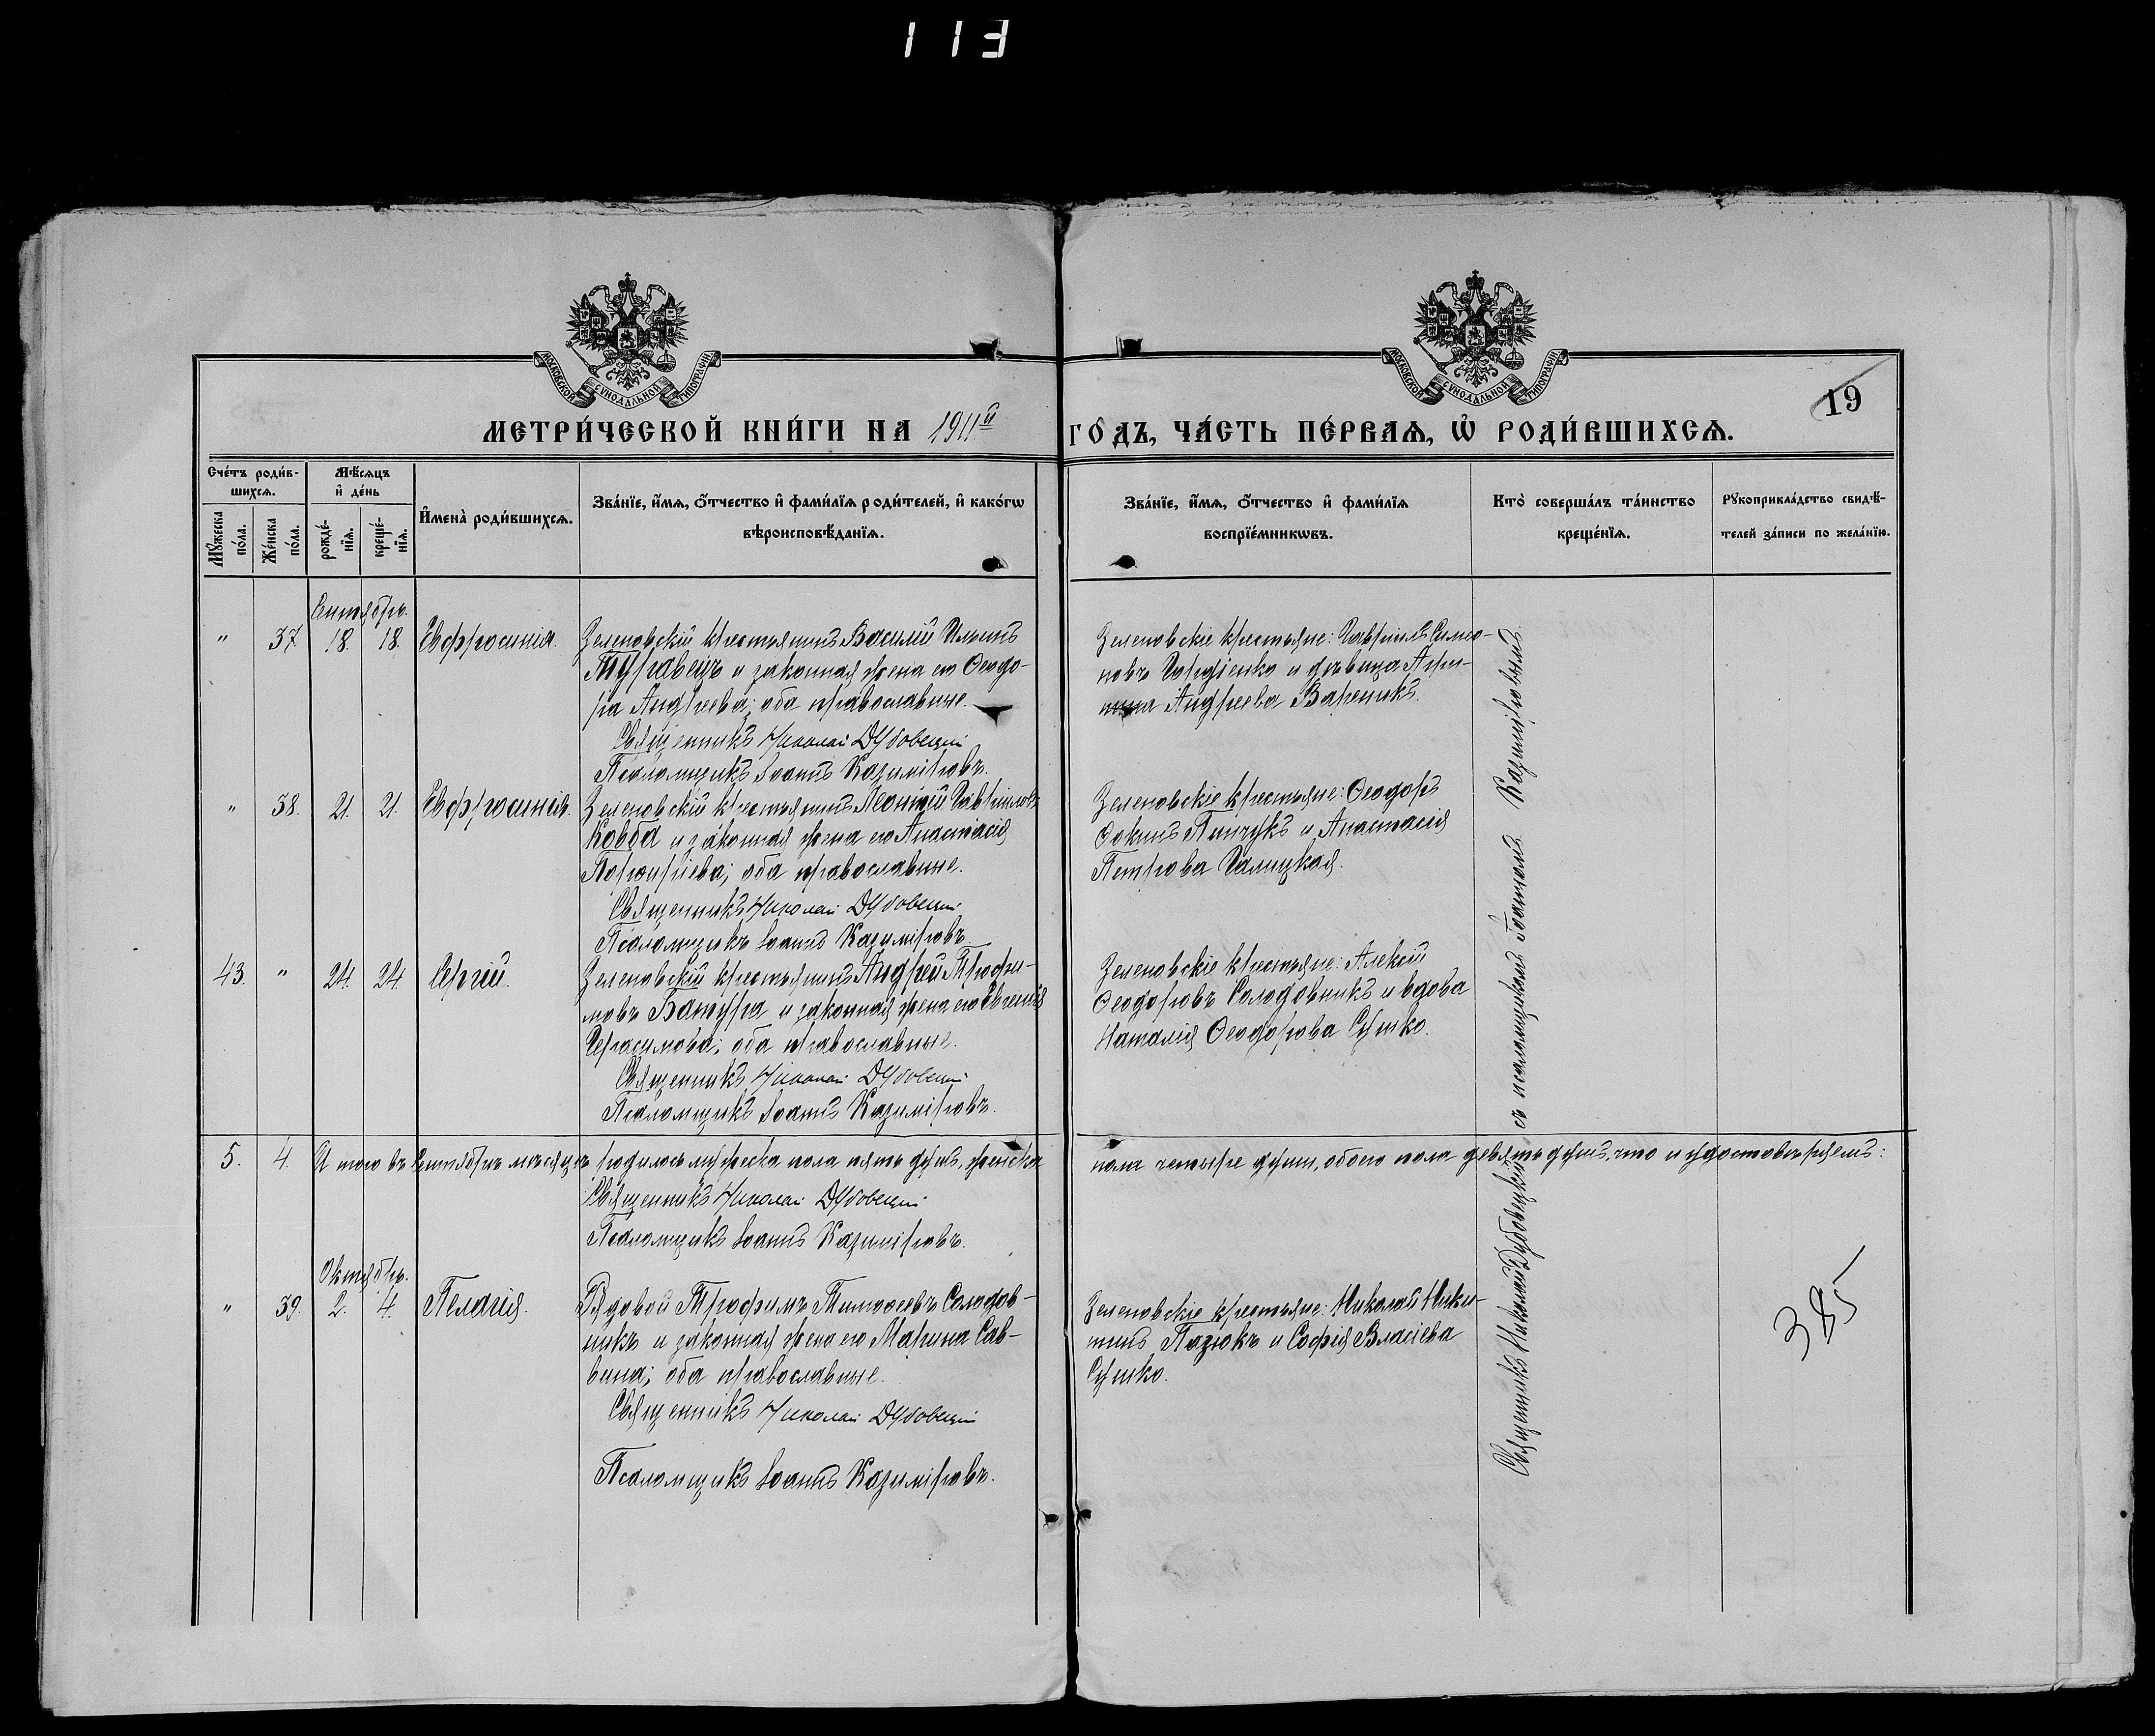 113
МОСКОВСКОЙ СУНОДАЛЬНОЙ ТИПОГРАФІИ
МОСКОВСКОЙ СУНОДАЛЬНОЙ ТИПОГРАФІИ
19
МЕТРИ́ЧЕСКОЙ КНИ́ГИ НА 1911й
ГО́ДЪ, ЧА́СТЬ ПЕ́РВАѦ, Ѡ҆ РОДИ́ВШИХСѦ.
Сче́тъ роди́в-
шихсѧ.
Мꙋ́жеска по́ла.
Же́нска по́ла.
Мѣ́сѧцъ
и҆ де́нь
рожде́-
нїѧ.
креще́-
нїѧ.
И҆мена̀ роди́вшихсѧ.
Зва́нїе, и҆́мѧ, ѻ҆́тчество и҆ фами́лїѧ роди́телей, и҆ како́гѡ
вѣроисповѣ́данїѧ.
Зва́нїе, и҆́мѧ, ѻ҆́тчество и҆ фами́лїѧ
воспрїе́мникѡвъ.
Кто̀ соверша́лъ та́инство
креще́нїѧ.
Рꙋкоприкла́дство свидѣ́-
телей за́писи по жела́нїю.
Сентябрь.
" 37 18. 18. Евфросинія.
Зеленовскій крестьянинъ Василій Ильинъ
Туравецъ и законная жена его Ѳеодо-
ра Андреева; оба православные.
Священникъ Николай Дубовецкій
Псаломщикъ Іоаннъ Казиміровъ.
Зеленовскіе крестьяне: Гавріилъ Симо-
новъ Гордіенко и дѣвица Ири-
Андреева Вареникъ.
" 38. 21. 21. Евфросинія.
Зеленовскій крестьянинъ Леонтій Гавріиловъ
Ковба и законная жена его Анастасія
Порфиріева; оба православные.
Священникъ Николай Дубовецкій
Псаломщикъ Іоаннъ Казиміровъ.
Зеленовскіе крестьяне: Ѳеодоръ
Ѳокинъ Пинчукъ и Анастасія
Петрова Галицкая.
43. " 24. 24 Сергій.
Зеленовскій крестьянинъ Андрей Трофи-
мовъ Бандура и законная жена его Евгенія
Герасимова; оба православные.
Священникъ Николай Дубовецкій
Псаломщикъ Іоаннъ Казиміровъ.
Зеленовскіе крестьяне: Алексій
Ѳеодоровъ Солодовникъ и вдова
Наталія Ѳеодорова Сушко.
5. 4. И того въ Сентябрѣ мѣсяцѣ родилось мужеска пола пять душъ, женска
пола четыре души, обоего пола девять душъ, что и удостовѣряемъ:
Священникъ Николай Дубовецкій
Псаломщикъ Іоаннъ Казиміровъ.
Октябрь.
" 39. 2. 4. Пелагія.
Рядовой Трофимъ Тимоѳеевъ Солодов-
никъ и законная жена его Марина Сав-
вина; оба православные.
Священникъ Николай Дубовецкій
Псаломщикъ Іоаннъ Казиміровъ.
Зеленовскіе крестьяне: Николай Ники-
тинъ Пазюкъ и Софія Власіева
Сушко.
Священникъ Николай Дубовецкій съ псаломщикомъ Іоанномъ Казиміровымъ.
385